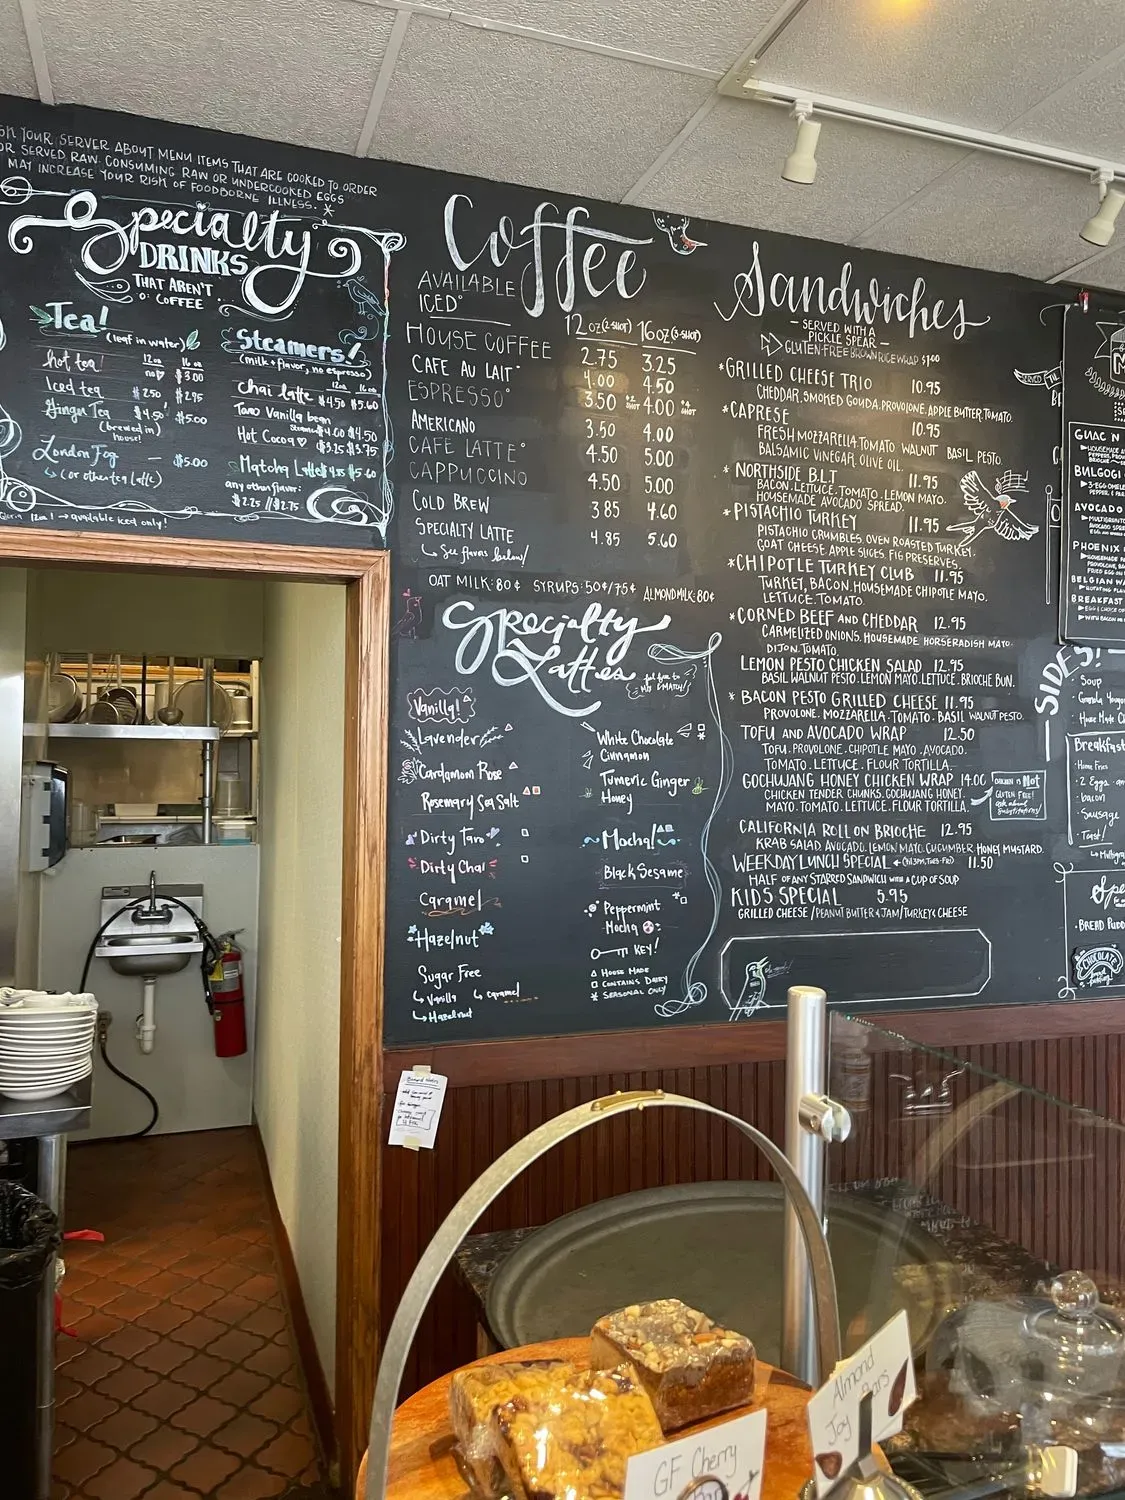 YOUR SERVER ABOUT MENU ITEMS THAT ARE COOKED TO ORDER
OR SERVED RAW. CONSUMING RAW OR UNDERCOOKED EGGS
MAY INCREASE YOUR RISK OF FOODBORNE ILLNESS. *
Specialty
DRINKS
THAT AREN'T
COFFEE
Tea!
(leaf in water)
12oz 16oz
hot tea! $3.00
Iced tea $2.50 $2.95
Ginger Tea $4.50 $5.00
(brewed in house!)
London Fog — $5.00
↳ (or other tea latte)
Steamers!
(milk + flavor, no espresso)
12oz 16oz
chai latte $4.50 $5.60
Taro Vanilla bean
Steamer $4.00 $4.50
Hot Cocoa ♡ $3.25 $3.75
Matcha Latte $4.85 $5.60
any other flavor:
$2.25 // $2.75
12oz! → available iced only!
Coffee
AVAILABLE
ICED°
12oz (2-SHOT) 16oz (3-SHOT)
HOUSE COFFEE 2.75 3.25
CAFE AU LAIT° 4.00 4.50
ESPRESSO° 3.50 •2 SHOT 4.00 •4 SHOT
AMERICANO 3.50 4.00
CAFE LATTE° 4.50 5.00
CAPPUCCINO 4.50 5.00
COLD BREW 3.85 4.60
SPECIALTY LATTE 4.85 5.60
↳ See flavors below!
OAT MILK: 80¢ SYRUPS: 50¢/75¢ ALMONDMILK: 80¢
Specialty
Lattes
feel free to
MIX & MATCH!
Vanilla! △
Lavender △
Cardamom Rose △
Rosemary Sea Salt △ □
Dirty Taro □
Dirty Chai □
Caramel
Hazelnut
Sugar Free
↳ Vanilla ↳ caramel
↳ Hazelnut
White Chocolate □ *
Cinnamon
Tumeric Ginger
Honey
Mocha! △ □
Black Sesame
Peppermint * □
Mocha
KEY!
△ HOUSE MADE
□ CONTAINS DAIRY
* SEASONAL ONLY
Sandwiches
— SERVED WITH A
PICKLE SPEAR —
GLUTEN-FREE BROWN RICE WRAP $1.00
*GRILLED CHEESE TRIO 10.95
CHEDDAR, SMOKED GOUDA, PROVOLONE, APPLE BUTTER, TOMATO.
*CAPRESE 10.95
FRESH MOZZARELLA. TOMATO WALNUT BASIL PESTO.
BALSAMIC VINEGAR, OLIVE OIL.
* NORTHSIDE B.L.T 11.95
BACON. LETTUCE. TOMATO. LEMON MAYO.
HOUSEMADE AVOCADO SPREAD.
*PISTACHIO TURKEY 11.95
PISTACHIO CRUMBLES. OVEN ROASTED TURKEY.
GOAT CHEESE. APPLE SLICES. FIG PRESERVES.
*CHIPOTLE TURKEY CLUB 11.95
TURKEY, BACON. HOUSEMADE CHIPOTLE MAYO.
LETTUCE. TOMATO.
*CORNED BEEF AND CHEDDAR 12.95
CARMELIZED ONIONS. HOUSEMADE HORSERADISH MAYO.
DIJON. TOMATO.
LEMON PESTO CHICKEN SALAD 12.95
BASIL WALNUT PESTO. LEMON MAYO. LETTUCE. BRIOCHE BUN.
* BACON PESTO GRILLED CHEESE 11.95
PROVOLONE. MOZZARELLA. TOMATO. BASIL WALNUT PESTO.
TOFU AND AVOCADO WRAP 12.50
TOFU. PROVOLONE. CHIPOTLE MAYO. AVOCADO.
TOMATO. LETTUCE. FLOUR TORTILLA.
GOCHUJANG HONEY CHICKEN WRAP 14.00
CHICKEN TENDER CHUNKS. GOCHUJANG HONEY.
MAYO. TOMATO. LETTUCE. FLOUR TORTILLA
CHICKEN IS NOT
GLUTEN FREE!
ask about
substitutions!
CALIFORNIA ROLL ON BRIOCHE 12.95
KRAB SALAD. AVOCADO. LEMON MAYO. CUCUMBER. HONEY MUSTARD.
WEEKDAY LUNCH SPECIAL 11.50
HALF OF ANY STARRED SANDWICH WITH A CUP OF SOUP
KIDS SPECIAL 5.95
GRILLED CHEESE/PEANUT BUTTER & JAM/TURKEY & CHEESE
SERVED 'TIL
GUAC N
BULGOGI
3-EGG OMELE
AVOCADO
MULTIGRAIN
AVOCADO SPRE
PHOENIX
HOUSEMADE
BELGIAN WA
BREAKFAST
SIDES!
· Soup
· Granola Yogur
Breakfast
· Home Fries
· 2 Eggs
· bacon
· Sausage
· Toast!
· BREAD PUDD
CHOCOLATE
GF Cherry
Almond
Joy Bars